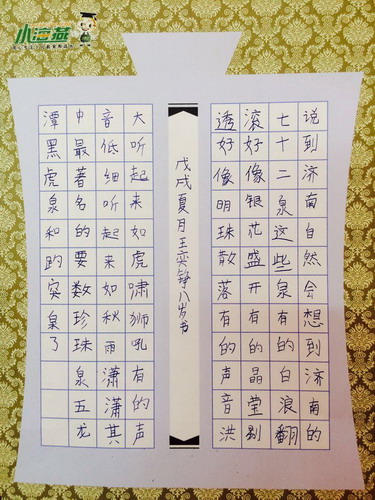 小海燕
说到济南自然会想到济南的
七十二泉这些泉有的白浪翻
滚好像银花盛开有的晶莹剔
透好像明珠散落有的声音洪
戊戌夏月王奕铮八岁书
大听起来如虎啸狮吼有的声
音低细听起来如秋雨潇潇其
中最著名的要数珍珠泉五龙
潭黑虎泉和趵突泉了